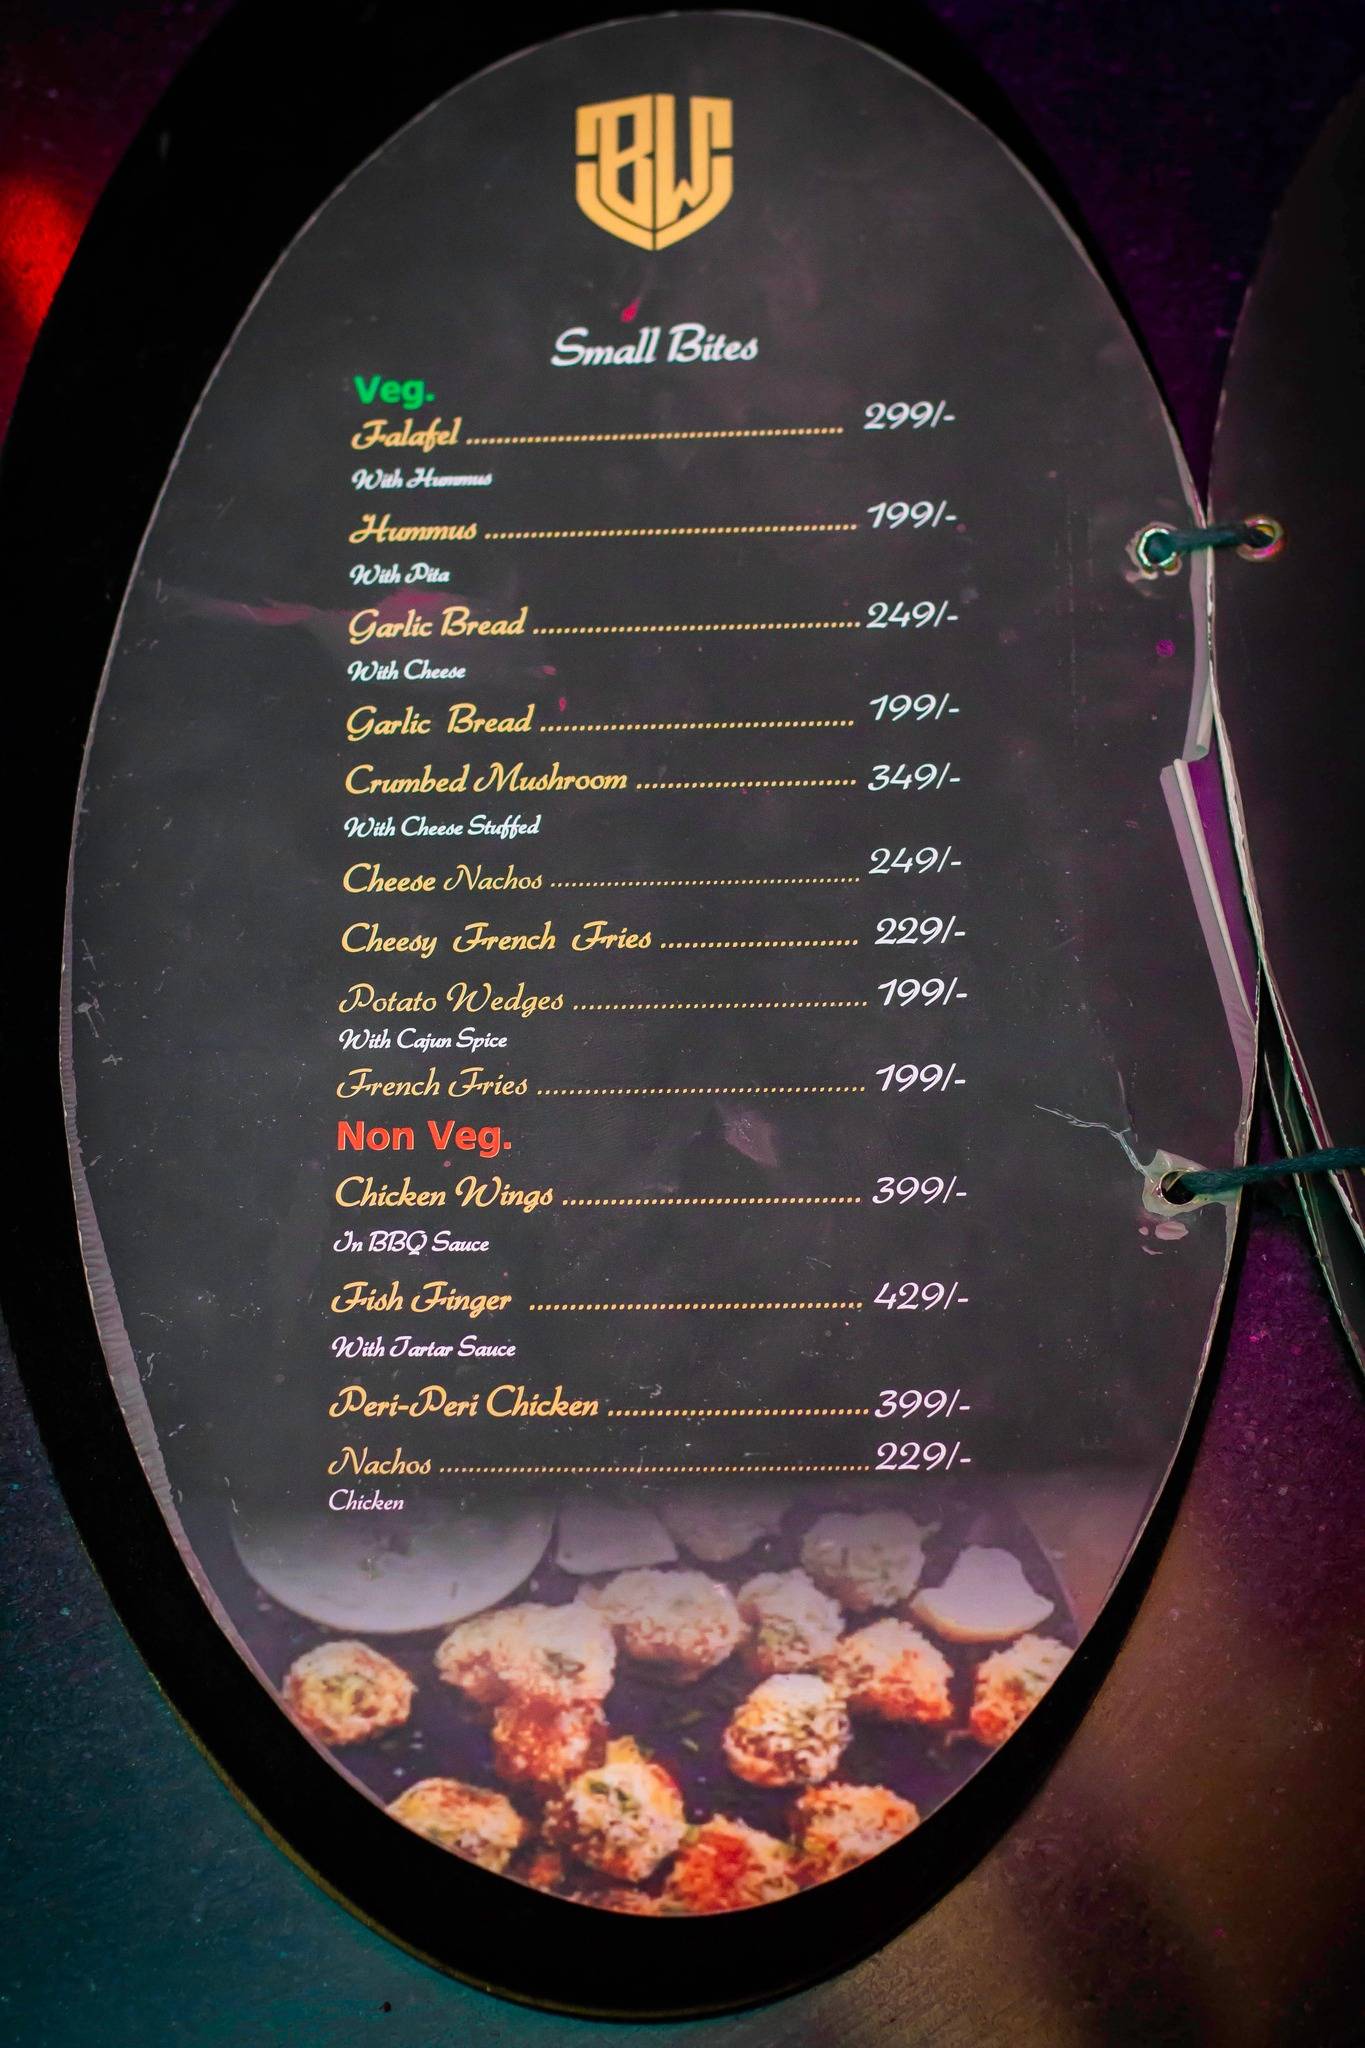 BW
Small Bites
Veg.
Falafel ........................................................ 299/-
With Hummus
Hummus ........................................................ 199/-
With Pita
Garlic Bread ................................................. 249/-
With Cheese
Garlic Bread ............................................... 199/-
Crumbed Mushroom ................................. 349/-
With Cheese Stuffed
Cheese Nachos .............................................. 249/-
Cheesy French Fries ............................. 229/-
Potato Wedges ............................................ 199/-
With Cajun Spice
French Fries ................................................. 199/-
Non Veg.
Chicken Wings ............................................ 399/-
In BBQ Sauce
Fish Finger .................................................. 429/-
With Tartar Sauce
Peri-Peri Chicken ....................................... 399/-
Nachos ................................................................ 229/-
Chicken